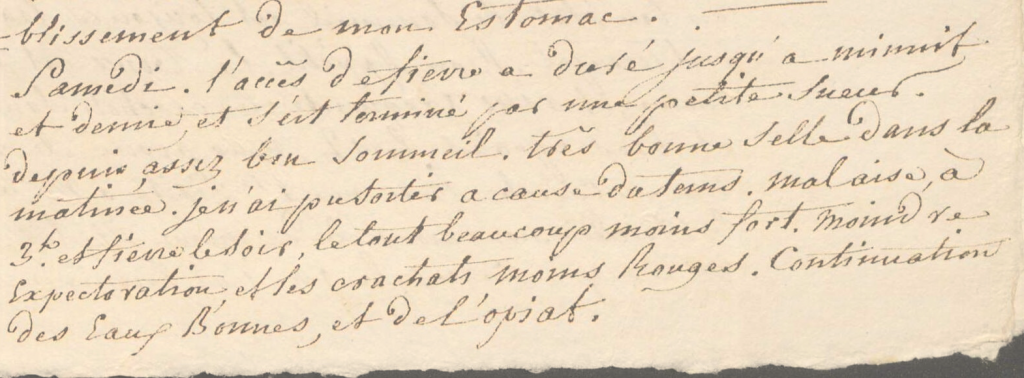 -blissement de mon Estomac.
Samedi. l'accès de fievre a duré jusqu'a minuit
et demie, et s'est terminé par une petite sueur.
depuis, assez bon sommeil. très bonne selle dans la
matinée. je n'ai pu sortir a cause du tems. malaise, à
3h. et fievre le soir, le tout beaucoup moins fort. moindre
Expectoration, et les crachats moins Rouges. Continuation
des Eaux Bonnes, et de l'opiat.